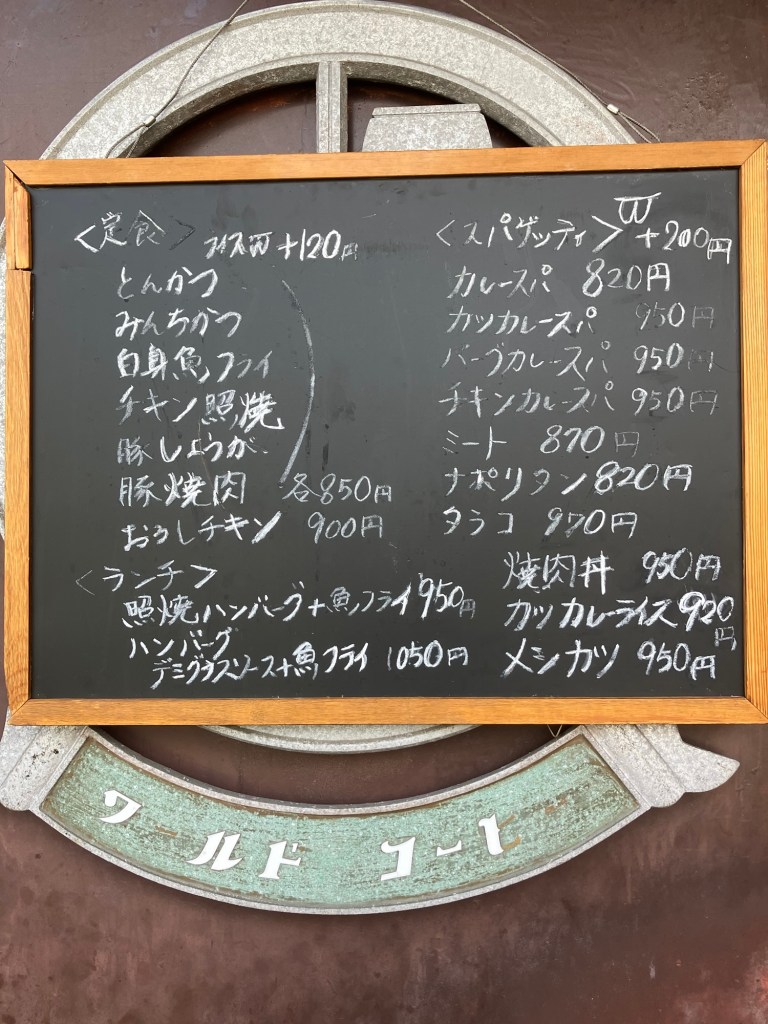 <定食> ライスW +120円
とんかつ
みんちかつ
白身魚フライ
チキン照焼
豚しょうが
豚焼肉 各850円
おろしチキン 900円
<ランチ>
照焼ハンバーグ+魚フライ 950円
ハンバーグ
デミグラスソース+魚フライ 1050円
<スパゲッティ> W +200円
カレースパ 820円
カツカレースパ 950円
バーグカレースパ 950円
チキンカレースパ 950円
ミート 870円
ナポリタン 820円
タラコ 970円
焼肉丼 950円
カツカレーライス 920円
メシカツ 950円
ワールド コーヒー